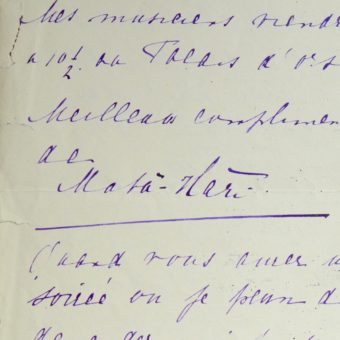 Mes musiciens viendr
a 10½ au Palais d'ors
Meilleurs complimen
de
Mata-Hari
quand vous aurez u
soirée ou je peux d
de